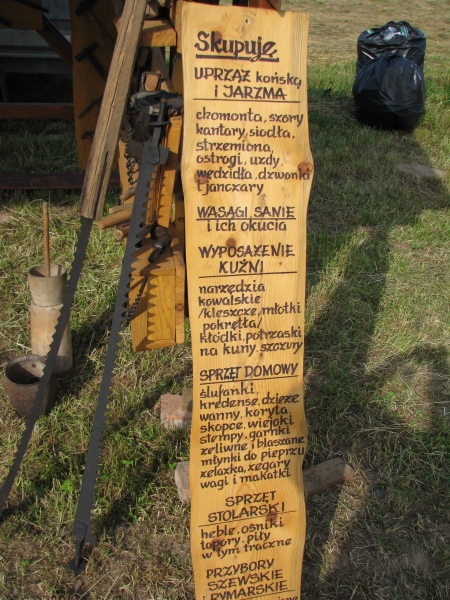 Skupuję
UPRZĄŻ końską
i JARZMA
chomonta, szory
kantary, siodła,
strzemiona,
ostrogi, uzdy,
wędzidła, dzwonki
i janczary
WASĄGI, SANIE
i ich okucia
WYPOSAŻENIE
KUŹNI
narzędzia
kowalskie
/kleszcze, młotki
pokrętła/
kłódki, potrzaski
na kuny, szczury
SPRZĘT DOMOWY
ślufanki,
kredense, dzieże
wanny, koryta,
skopce, wiejoki
stempy, garnki
żeliwne i blaszane
młynki do pieprzu
żelazka, zegary
wagi i makatki
SPRZĘT
STOLARSKI
heble, ośniki
topory, piły
w tym traczne
PRZYBORY
SZEWSKIE
i RYMARSKIE